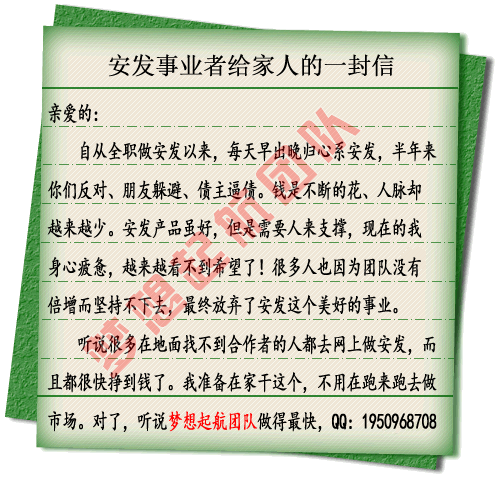 安发事业者给家人的一封信
亲爱的：
自从全职做安发以来，每天早出晚归心系安发，半年来
你们反对、朋友躲避、债主逼债。钱是不断的花、人脉却
越来越少。安发产品虽好，但是需要人来支撑，现在的我
身心疲惫，越来越看不到希望了！很多人也因为团队没有
倍增而坚持不下去，最终放弃了安发这个美好的事业。
听说很多在地面找不到合作者的人都去网上做安发，而
且都很快挣到钱了。我准备在家干这个，不用在跑来跑去做
市场。对了，听说梦想起航团队做得最快，QQ：1950968708
梦想起航团队